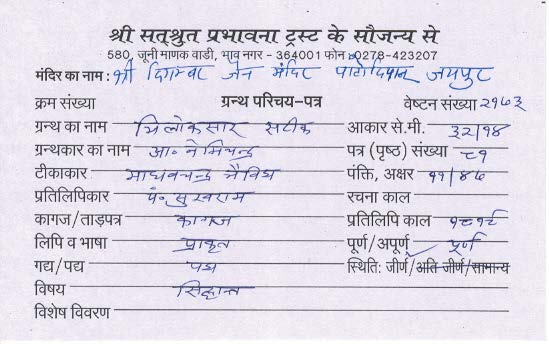 श्री सत्श्रुत प्रभावना ट्रस्ट के सौजन्य से
580, जूनी माणक वाडी, भाव नगर - 364001 फोन : 0278-423207
मंदिर का नाम : श्री दिगम्बर जैन मंदिर पाटोदियान जयपुर
क्रम संख्या ग्रन्थ परिचय-पत्र वेष्टन संख्या २१७३
ग्रन्थ का नाम त्रिलोकसार सटीक आकार से.मी. ३२/१४
ग्रन्थकार का नाम आ. नेमिचन्द्र पत्र (पृष्ठ) संख्या ८१
टीकाकार माधवचन्द्र त्रैविध पंक्ति, अक्षर ११/४७
प्रतिलिपिकार पं. सुखराम रचना काल
कागज/ताड़पत्र कागज प्रतिलिपि काल १८१८
लिपि व भाषा प्राकृत पूर्ण/अपूर्ण पूर्ण
गद्य/पद्य पद्य स्थिति: जीर्ण/अति जीर्ण/सामान्य
विषय सिद्धान्त
विशेष विवरण